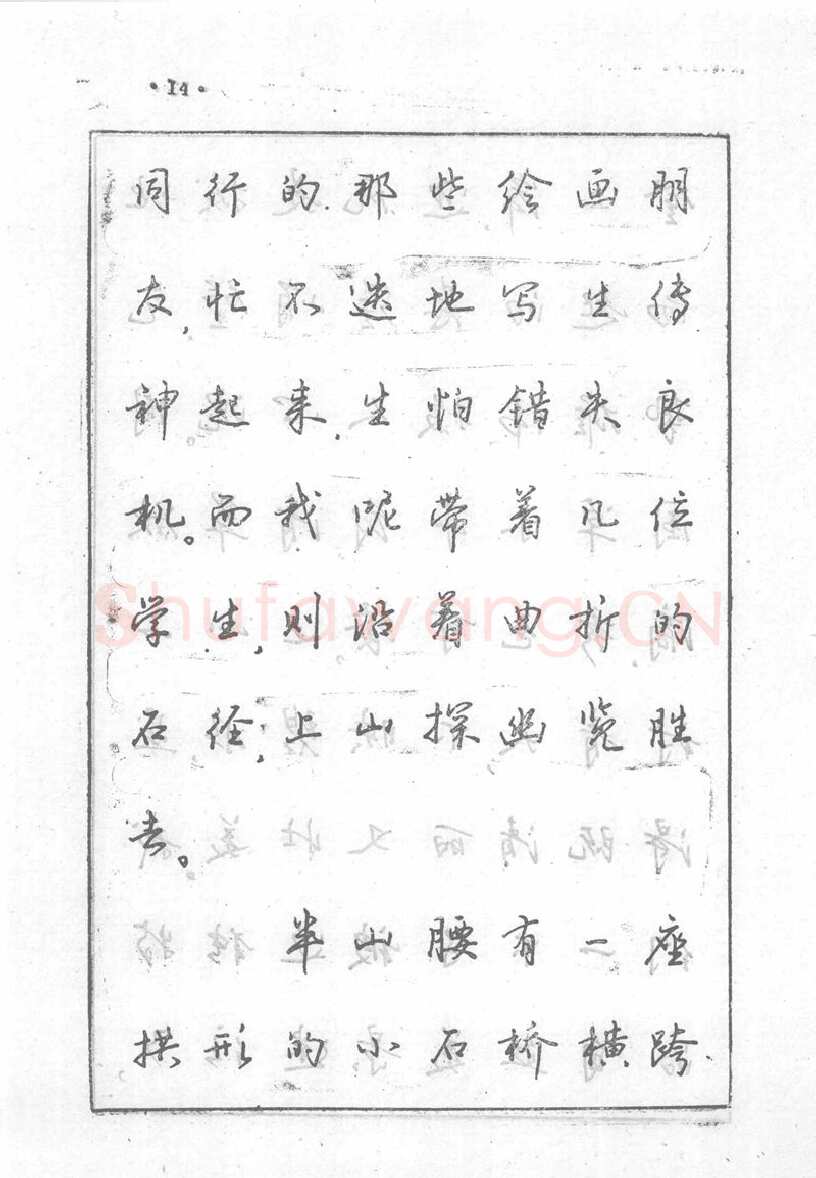 ·14·
同行的那些绘画朋
友,忙不迭地写生传
神起来,生怕错失良
机。而我呢带着几位
学生,则沿着曲折的
石径,上山探幽览胜
去。
半山腰有一座
拱形的小石桥横跨
Shufawang.CN